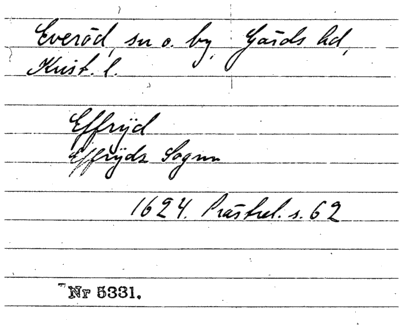 Everöd, sn o. by, Gärds hd,
Krist. l.
Effrÿd
Effrÿds Sognn
1624. Prästrel. s. 62
Nr 5331.